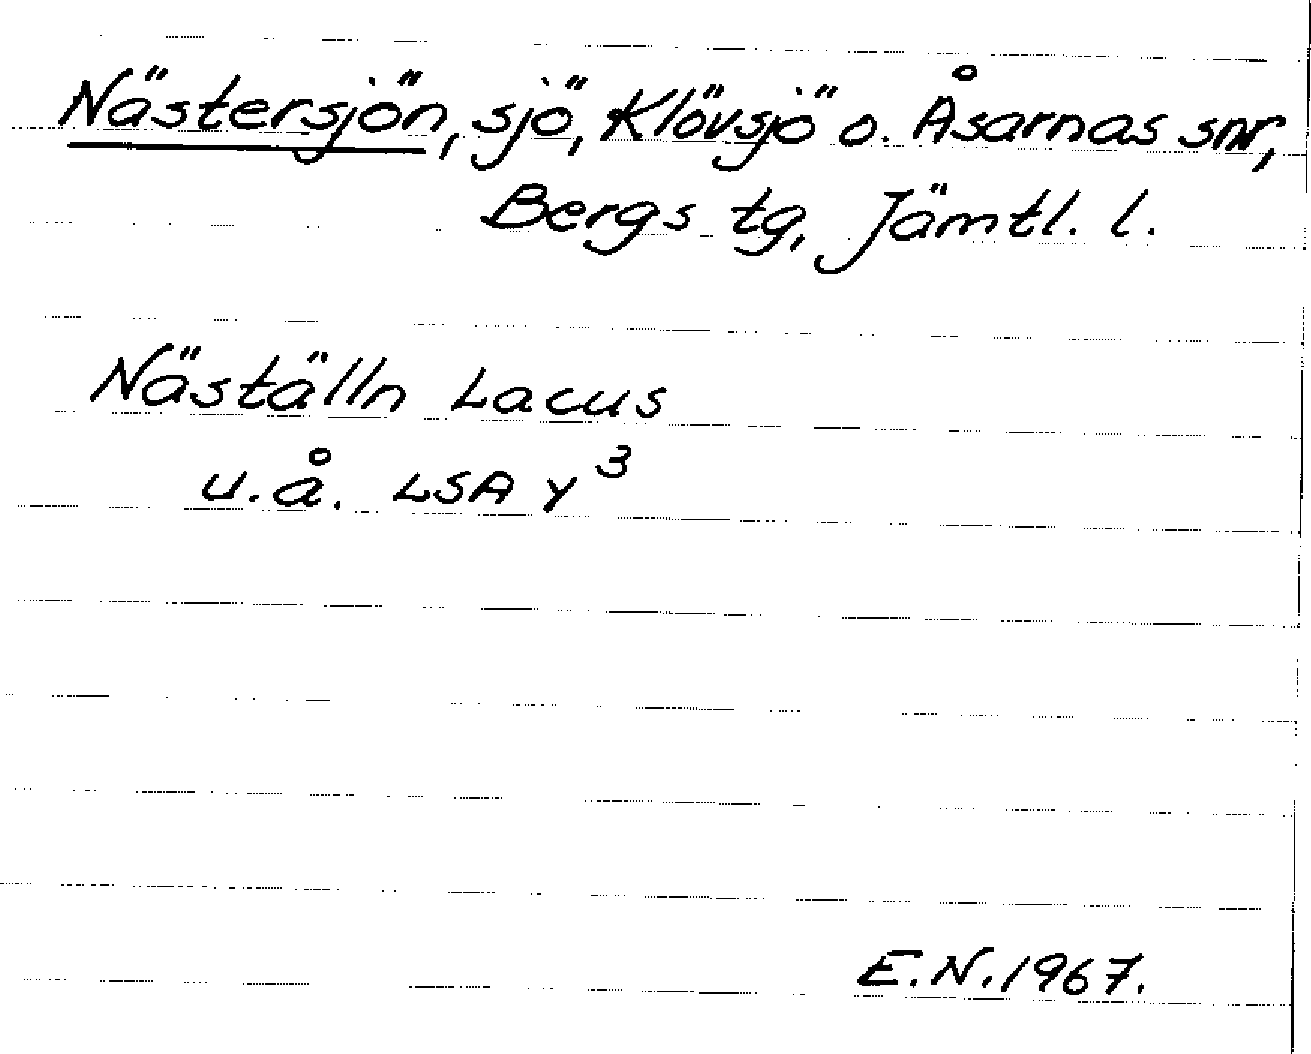 Nästersjön, sjö, Klövsjö o. Åsarnas snr,
Bergs tg, Jämtl. l.
Näställn Lacus
u.å. LSA Y³
E.N. 1967.